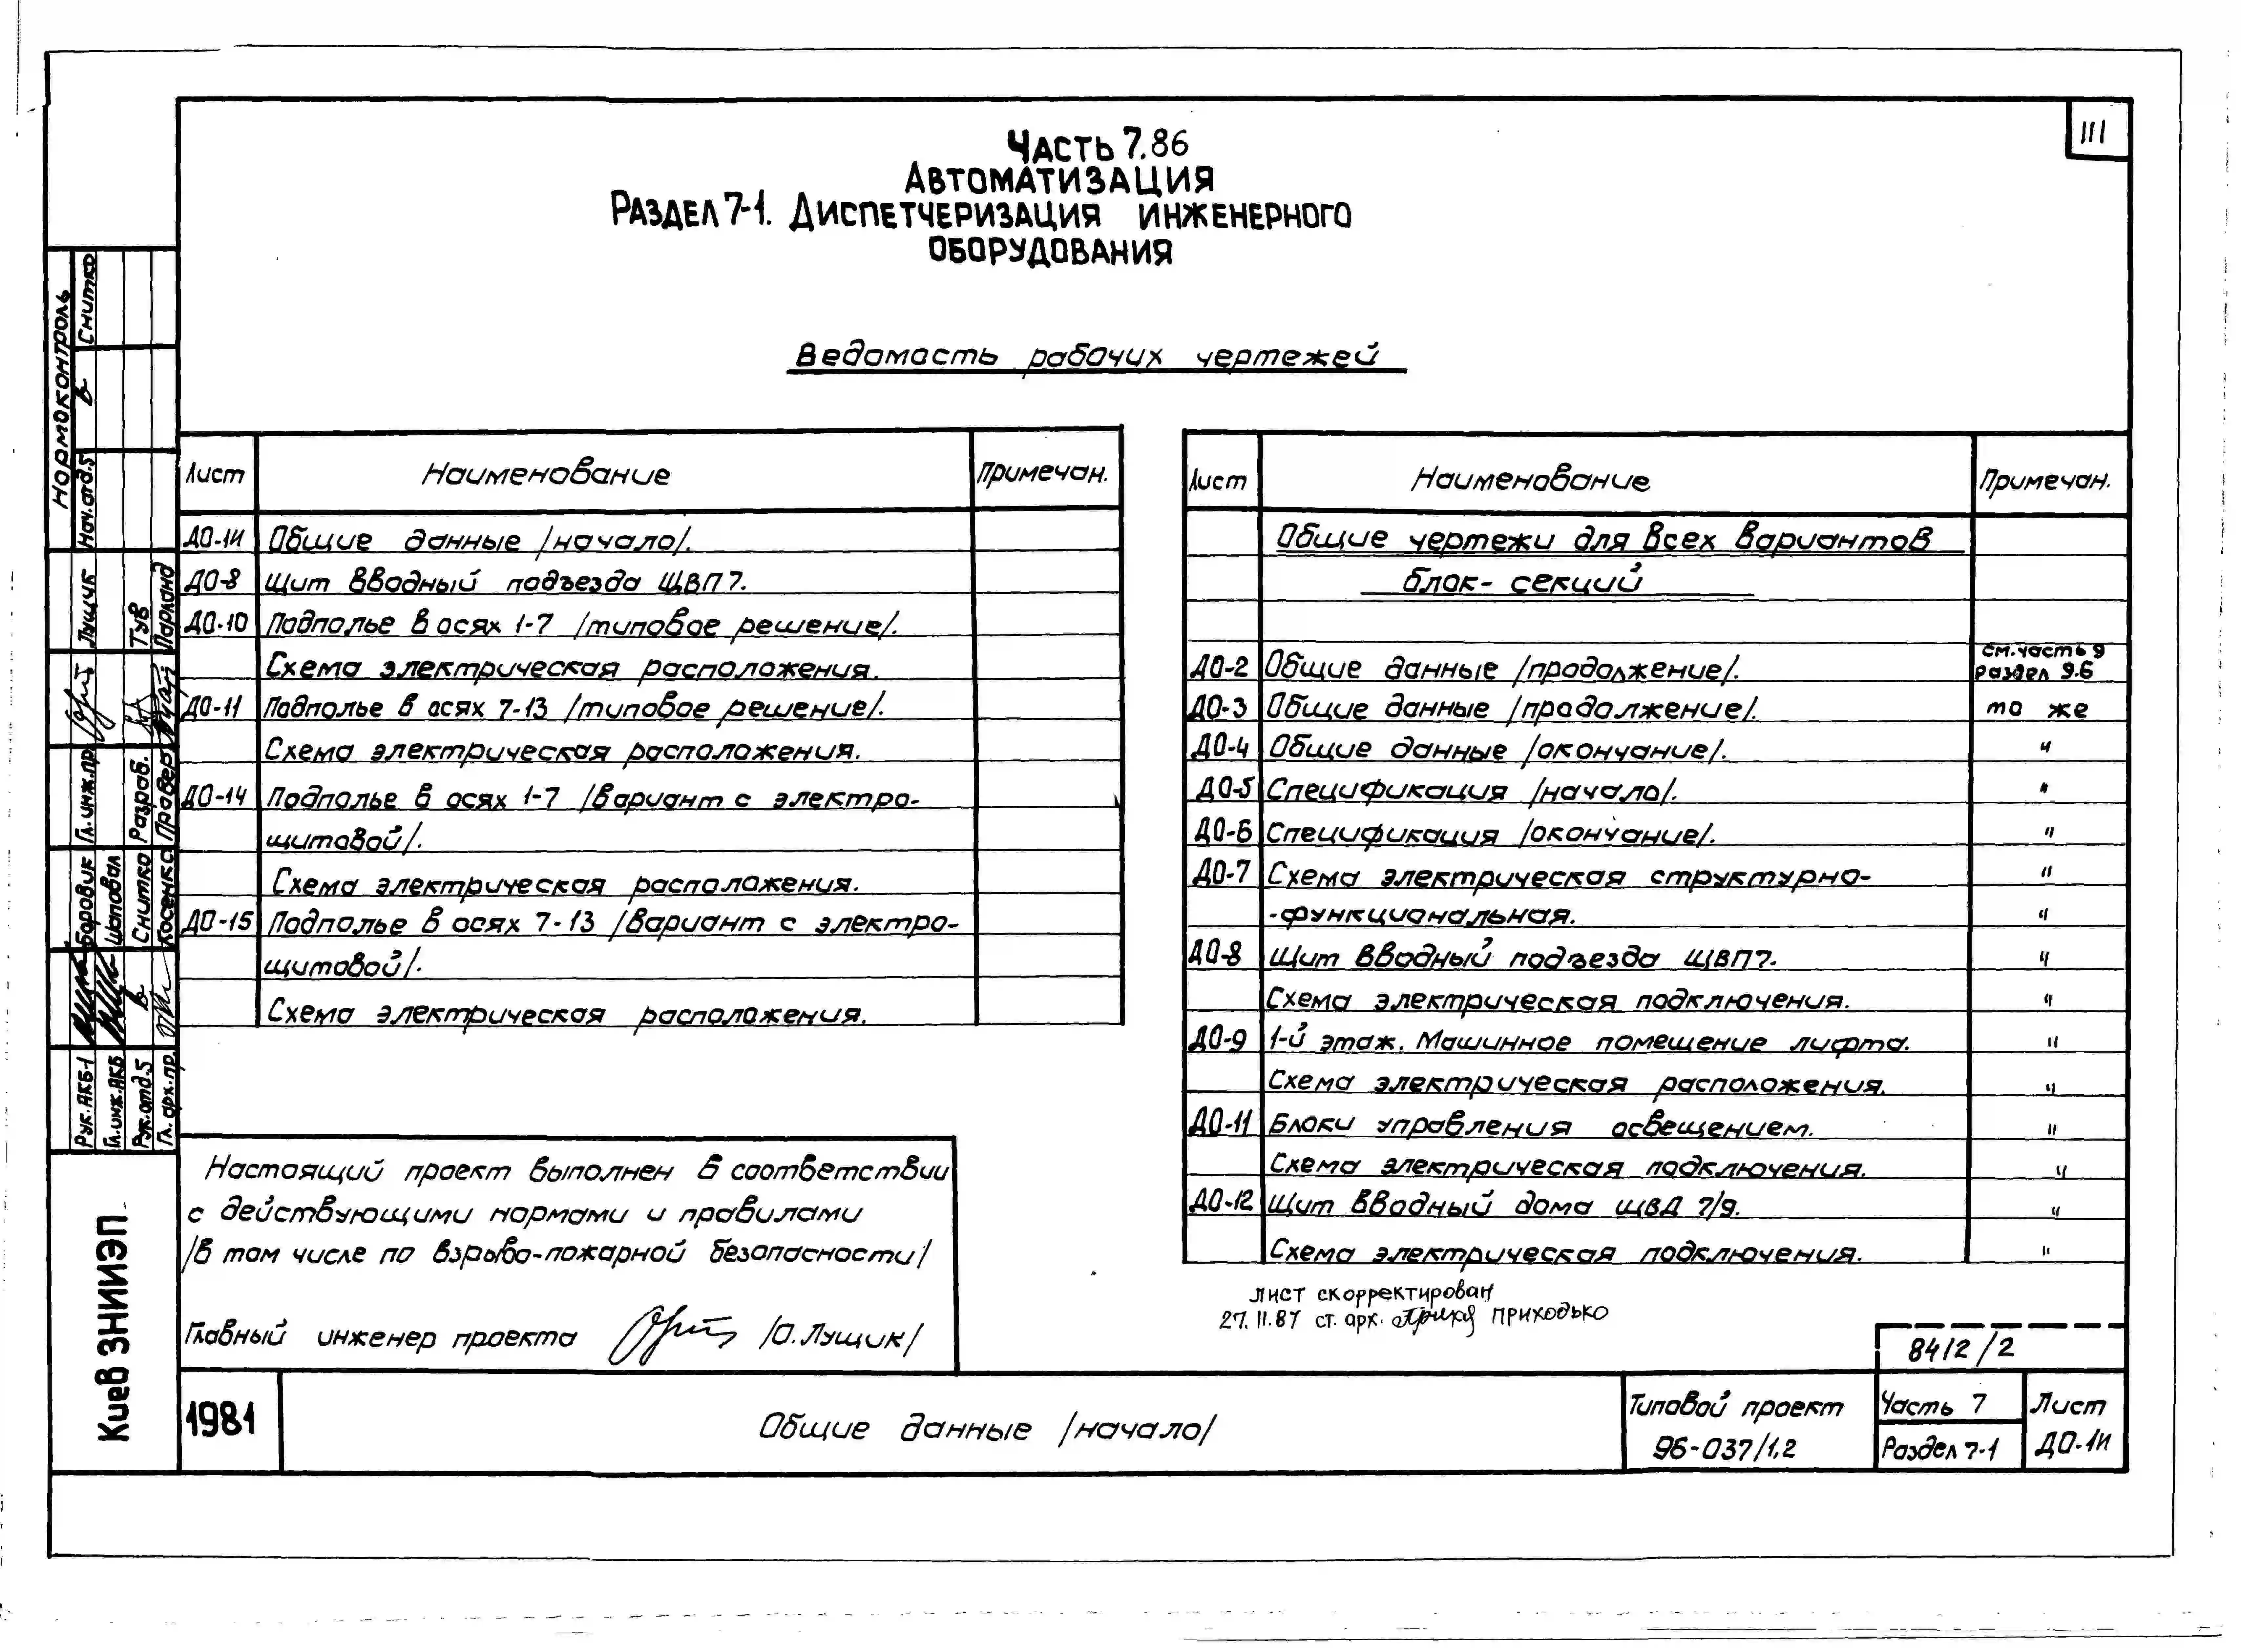 III
Часть 7.86
Автоматизация
Раздел 7-1. Диспетчеризация инженерного
оборудования
Ведомость рабочих чертежей
Лист Наименование Примечан.
ДО-1И Общие данные /начало/.
ДО-8 Щит вводный подъезда ЩВП7.
ДО-10 Подполье в осях 1-7 /типовое решение/.
Схема электрическая расположения.
ДО-11 Подполье в осях 7-13 /типовое решение/.
Схема электрическая расположения.
ДО-14 Подполье в осях 1-7 /вариант с электро-
щитовой/.
Схема электрическая расположения.
ДО-15 Подполье в осях 7-13 /вариант с электро-
щитовой/.
Схема электрическая расположения.
Лист Наименование Примечан.
Общие чертежи для всех вариантов
блок- секций
ДО-2 Общие данные /продолжение/. см. часть 9
раздел 9.6
ДО-3 Общие данные /продолжение/. то же
ДО-4 Общие данные /окончание/. "
ДО-5 Спецификация /начало/. "
ДО-6 Спецификация /окончание/. "
ДО-7 Схема электрическая структурно- "
-функциональная. "
ДО-8 Щит вводный подъезда ЩВП7. "
Схема электрическая подключения. "
ДО-9 1-й этаж. Машинное помещение лифта. "
Схема электрическая расположения. "
ДО-11 Блоки управления освещением. "
Схема электрическая подключения. "
ДО-12 Щит вводный дома ЩВД 7/9. "
Схема электрическая подключения. "
Настоящий проект выполнен в соответствии
с действующими нормами и правилами
/в том числе по взрыво-пожарной безопасности/
Главный инженер проекта /О. Лущик/
лист скорректирован
27.11.87 ст. арх. Приходько
8412/2
1981 Общие данные /начало/
Типовой проект
96-037/1,2
Часть 7
Раздел 7-1
Лист
ДО-1И
Нормоконтроль
Нач. отд. 5 Снитко
Гл. инж. пр. Лущик
Разраб. Тув
Провер. Парланд
Рук. АКБ-1 Боровик
Гл. инж. АКБ Шаповал
Рук. отд. 5 Снитко
Гл. арх. пр. Косенко
Киев ЗНИИЭП